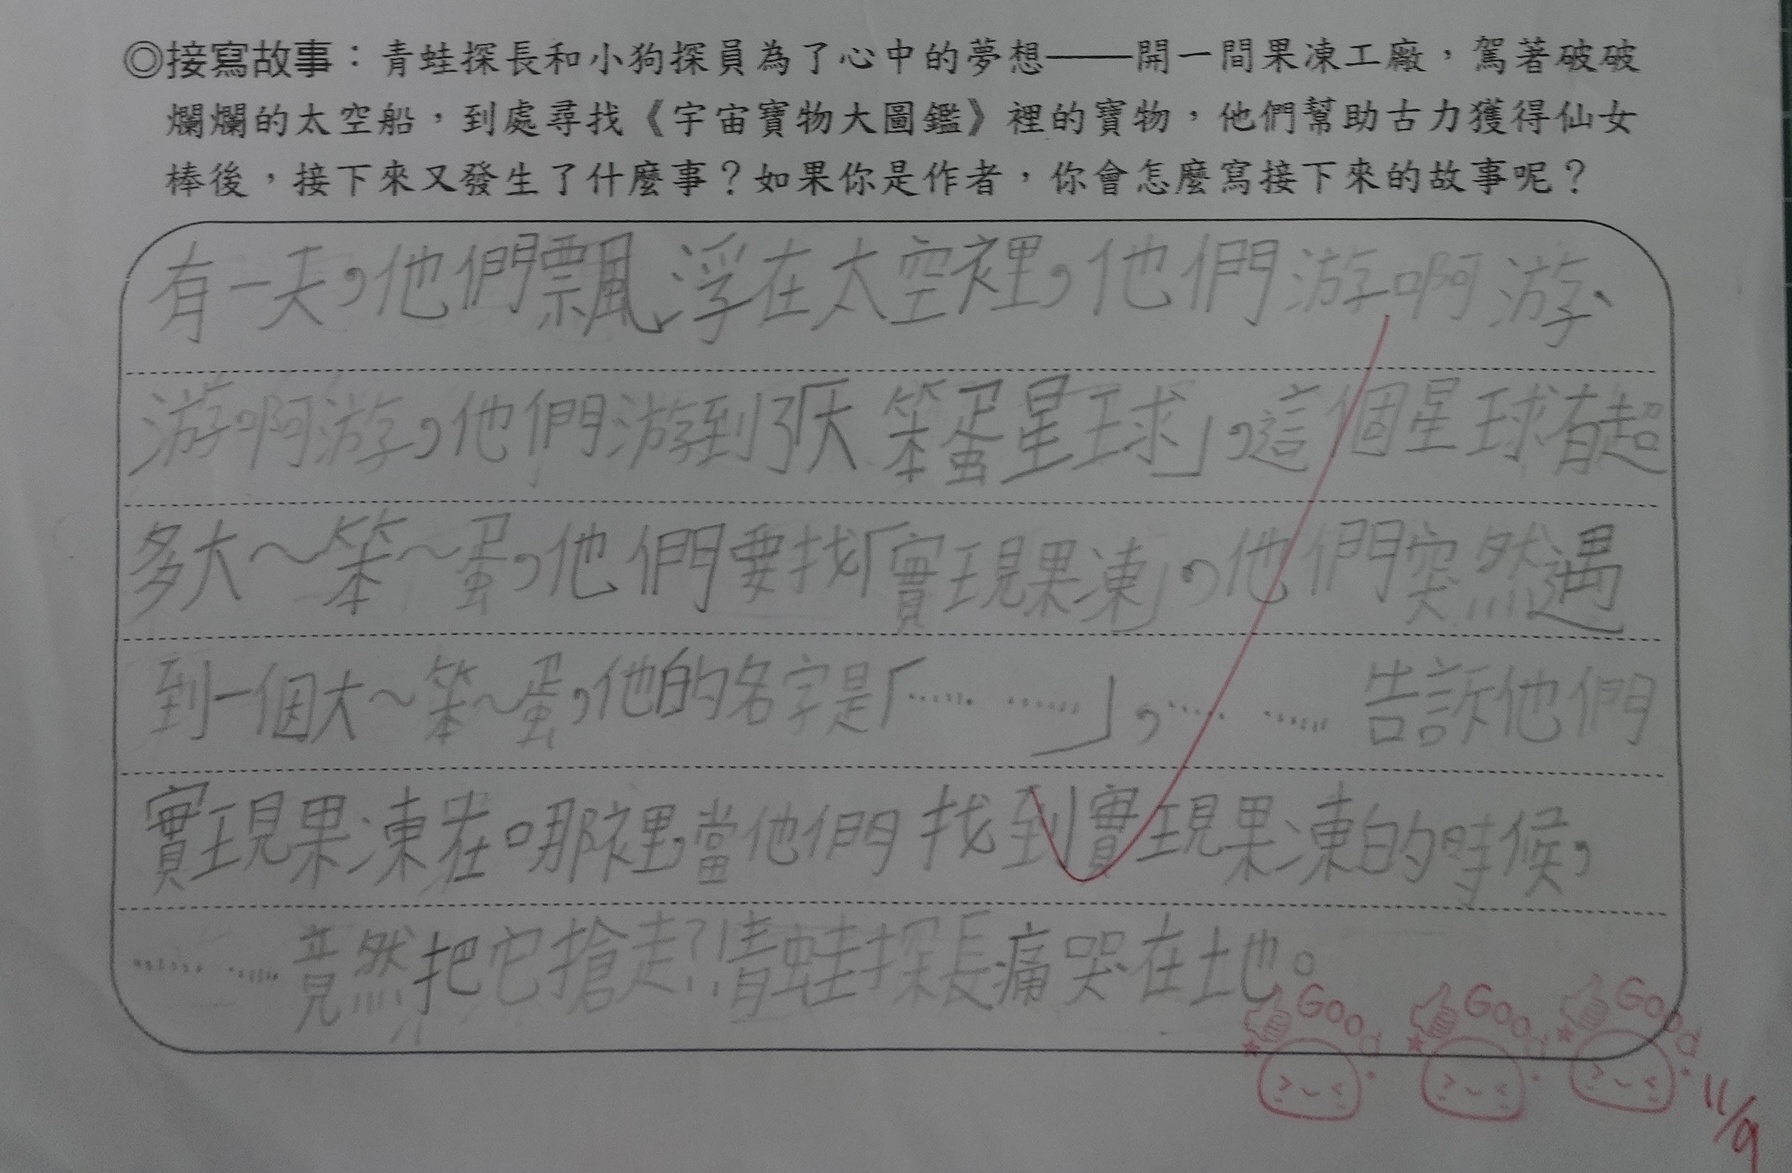 ◎接寫故事：青蛙探長和小狗探員為了心中的夢想──開一間果凍工廠，駕著破破
爛爛的太空船，到處尋找《宇宙寶物大圖鑑》裡的寶物，他們幫助古力獲得仙女
棒後，接下來又發生了什麼事？如果你是作者，你會怎麼寫接下來的故事呢？
有一天，他們飄浮在太空裡，他們游啊游、
游啊游，他們游到了「大笨蛋星球」，這個星球有超
多大～笨～蛋，他們要找「實現果凍」，他們突然遇
到一個大～笨～蛋，他的名字是「…… ……」，…… ……告訴他們
實現果凍在哪裡，當他們找到實現果凍的時候，
…… ……竟然把它搶走?!青蛙探長痛哭在土地。
Good Good Good
11/9